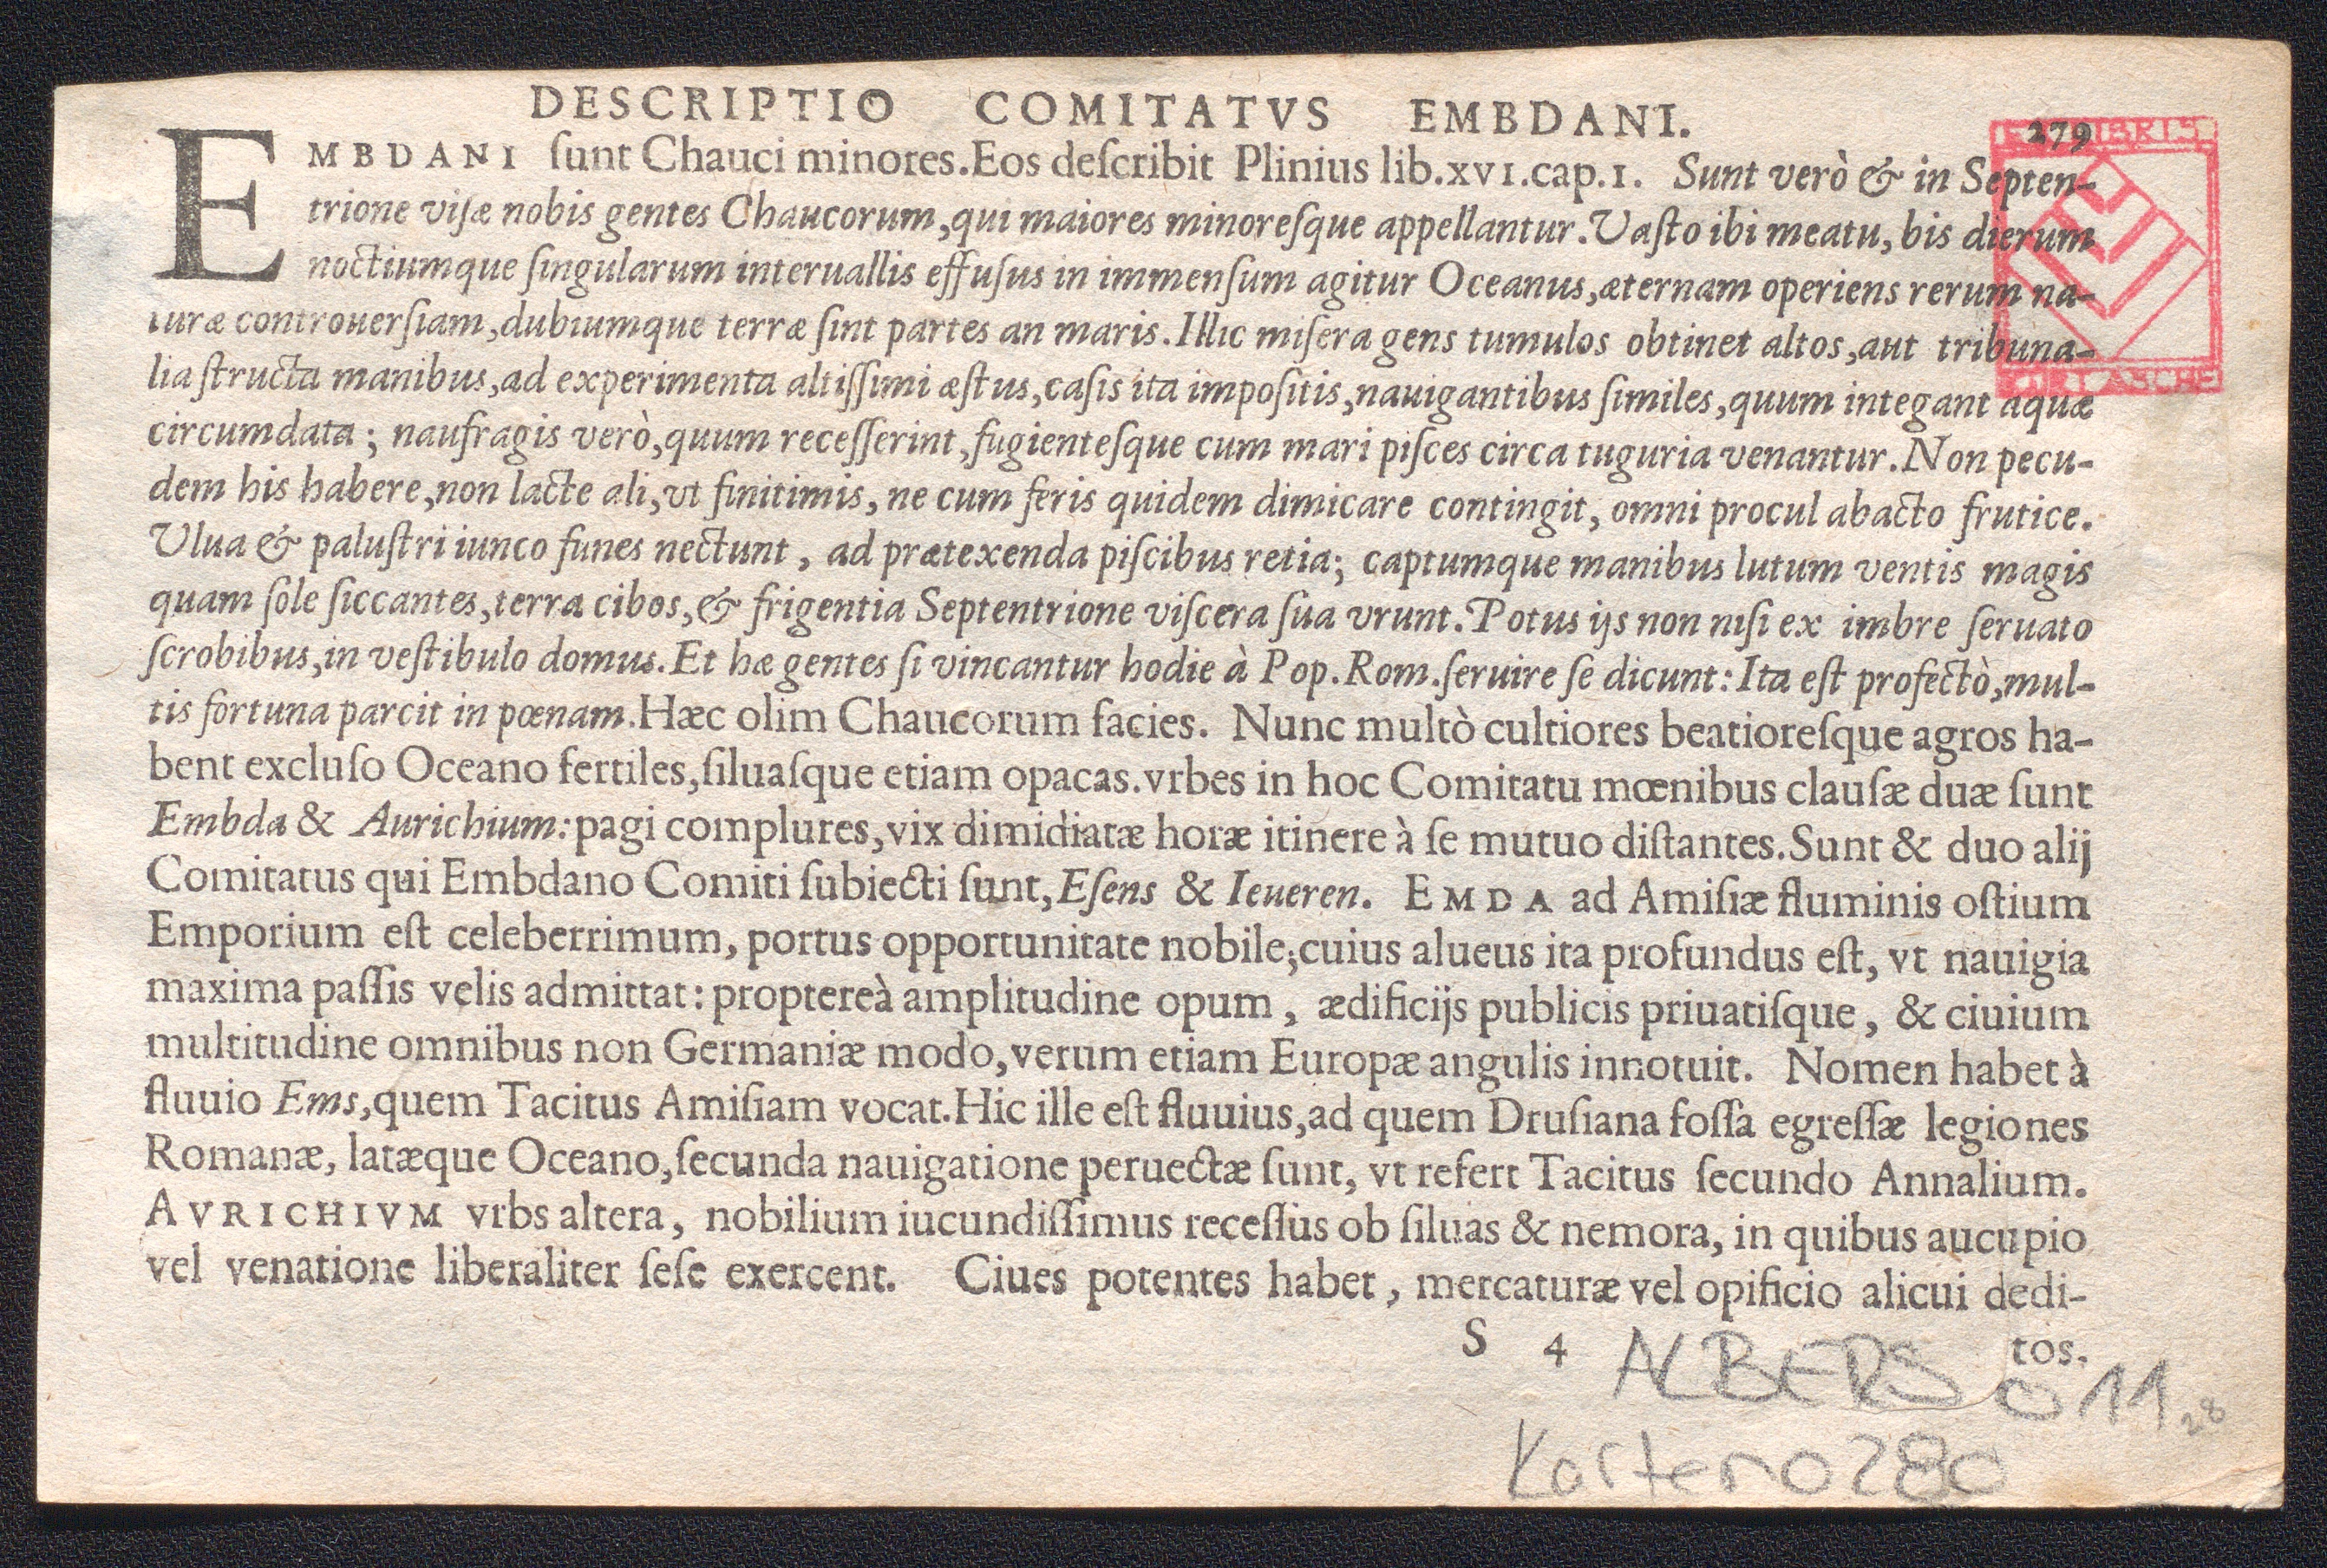 DESCRIPTIO COMITATVS EMBDANI.
279
EMBDANI ſunt Chauci minores. Eos deſcribit Plinius lib. XVI. cap. I. Sunt verò & in Septen-
trione viſæ nobis gentes Chaucorum, qui maiores minoreſque appellantur. Vaſto ibi meatu, bis dierum
noctiumque ſingularum interuallis effuſus in immenſum agitur Oceanus, æternam operiens rerum na-
turæ controuerſiam, dubiumque terræ ſint partes an maris. Illic miſera gens tumulos obtinet altos, aut tribuna-
lia ſtructa manibus, ad experimenta altiſſimi æſtus, caſis ita impoſitis, nauigantibus ſimiles, quum integant aquæ
circumdata; naufragis verò, quum receſſerint, fugienteſque cum mari piſces circa tuguria venantur. Non pecu-
dem his habere, non lacte ali, vt finitimis, ne cum feris quidem dimicare contingit, omni procul abacto frutice.
Vlua & paluſtri iunco funes nectunt, ad prætexenda piſcibus retia; captumque manibus lutum ventis magis
quam ſole ſiccantes, terra cibos, & frigentia Septentrione viſcera ſua vrunt. Potus ijs non niſi ex imbre ſeruato
ſcrobibus, in veſtibulo domus. Et hæ gentes ſi vincantur hodie à Pop. Rom. ſeruire ſe dicunt: Ita eſt profectò, mul-
tis fortuna parcit in pœnam. Hæc olim Chaucorum facies. Nunc multò cultiores beatioreſque agros ha-
bent excluſo Oceano fertiles, ſiluaſque etiam opacas. vrbes in hoc Comitatu mœnibus clauſæ duæ ſunt
Embda & Aurichium: pagi complures, vix dimidiatæ horæ itinere à ſe mutuo diſtantes. Sunt & duo alij
Comitatus qui Embdano Comiti ſubiecti ſunt, Eſens & Ieueren. EMDA ad Amiſiæ fluminis oſtium
Emporium eſt celeberrimum, portus opportunitate nobile; cuius alueus ita profundus eſt, vt nauigia
maxima paſſis velis admittat: proptereà amplitudine opum, ædificijs publicis priuatiſque, & ciuium
multitudine omnibus non Germaniæ modo, verum etiam Europæ angulis innotuit. Nomen habet à
fluuio Ems, quem Tacitus Amiſiam vocat. Hic ille eſt fluuius, ad quem Druſiana foſſa egreſſæ legiones
Romanæ, latæque Oceano, ſecunda nauigatione peruectæ ſunt, vt refert Tacitus ſecundo Annalium.
AVRICHIVM vrbs altera, nobilium iucundiſſimus receſſus ob ſiluas & nemora, in quibus aucupio
vel venatione liberaliter ſeſe exercent. Ciues potentes habet, mercaturæ vel opificio alicui dedi-
S 4
tos.
ALBERS 011 28
Karten 0280